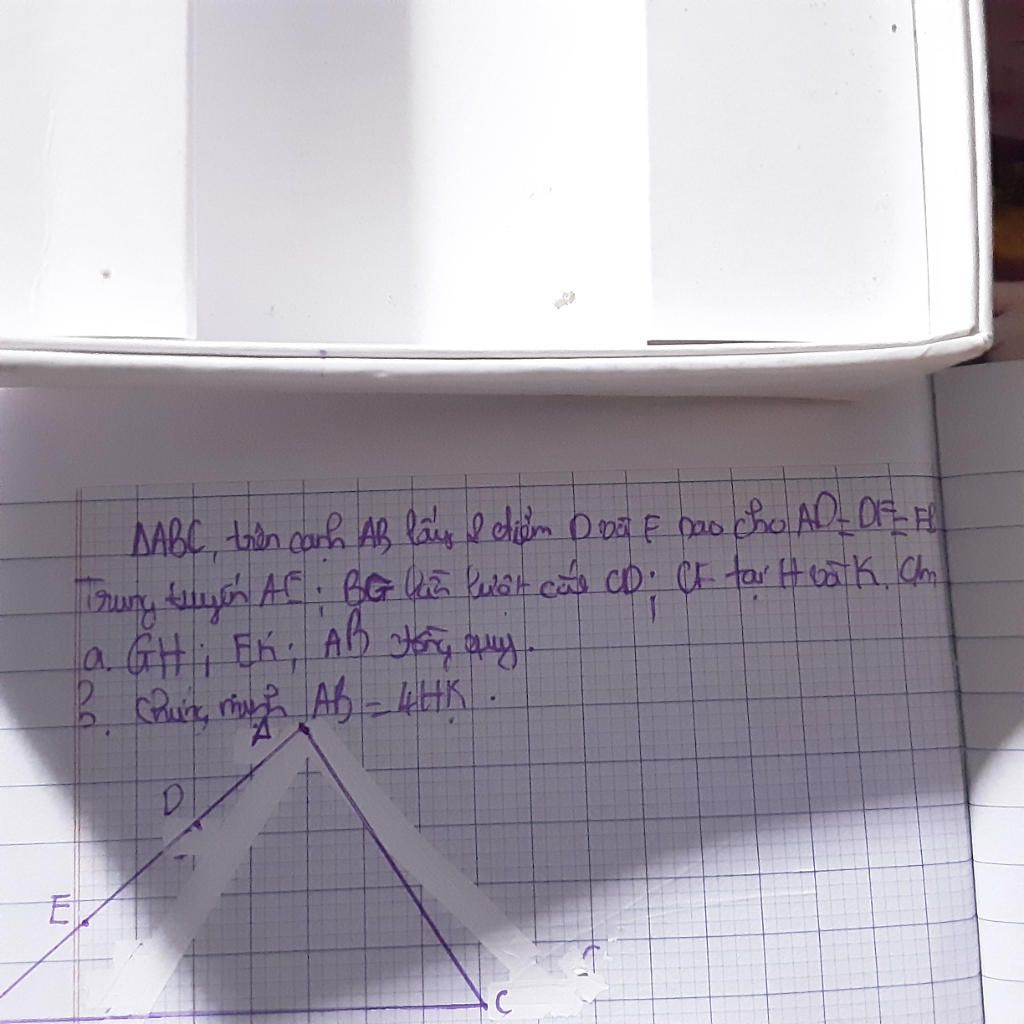 ΔABC, trên cạnh AB lấy 2 điểm D và F sao cho AD = DF = FB
Trung tuyến AE; BG lần lượt cắt CD; CF tại H và K. Cm
a. GH; EK; AB đồng quy.
b. Chứng minh AB = 4HK.
A
D
E
C